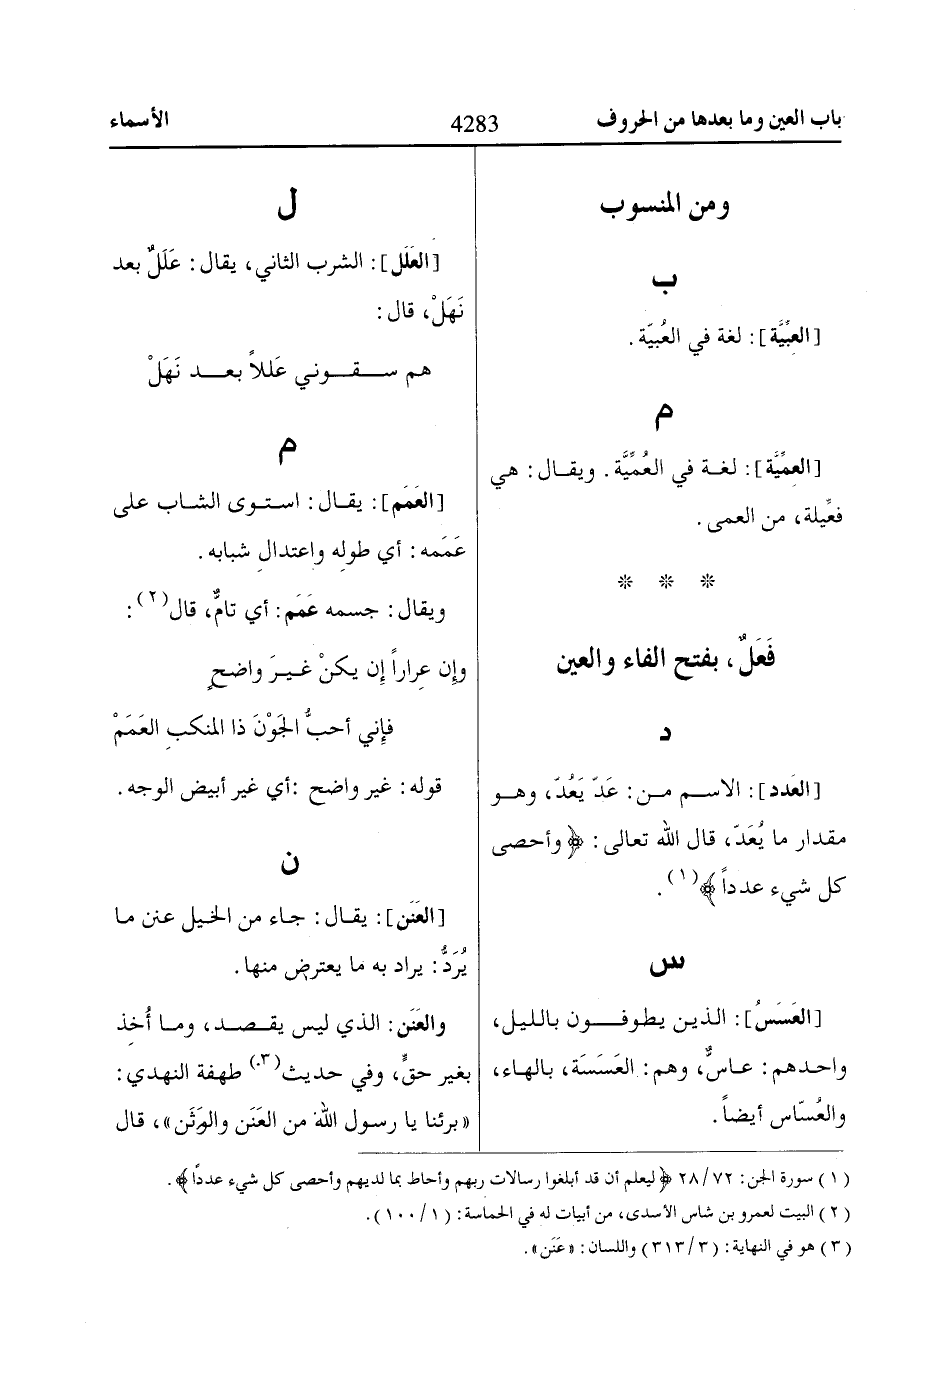 باب العين وما بعدها من الحروف 4283 الأسماء
ومن المنسوب
ب
[العبِّيَّة]: لغة في العُبيّة.
م
[العمِّيَّة]: لغة في العُمِّيَّة. ويقال: هي
فعِّيلة، من العمى.
* * *
فَعَلٌ، بفتح الفاء والعين
د
[العَدد]: الاسم من: عَدّ يَعُدّ، وهو
مقدار ما يُعَدّ، قال الله تعالى: ﴿وأحصى
كل شيء عدداً﴾(١).
س
[العَسَسُ]: الذين يطوفون بالليل،
واحدهم: عاسٌّ، وهم: العَسَسَة، بالهاء،
والعُسّاس أيضاً.
ل
[العَلَل]: الشرب الثاني، يقال: عَلَلٌ بعد
نَهَلْ، قال:
هم سقوني عَللاً بعد نَهَلْ
م
[العَمَم]: يقال: استوى الشاب على
عَمَمه: أي طوله واعتدال شبابه.
ويقال: جسمه عَمَم: أي تامٌّ، قال(٢):
وإن عراراً إن يكنْ غيرَ واضحٍ
فإني أحبُّ الجَوْنَ ذا المنكبِ العَمَمْ
قوله: غير واضح :أي غير أبيض الوجه.
ن
[العَنَن]: يقال: جاء من الخيل عنن ما
يُرَدُّ: يراد به ما يعترض منها.
والعَنَن: الذي ليس يقصد، وما أُخِذ
بغير حقٍّ، وفي حديث(٣) طهفة النهدي:
«برئنا يا رسول الله من العَنَن والوَثَن»، قال
(١) سورة الجن: ٢٨/٧٢ ﴿ليعلم أن قد أبلغوا رسالات ربهم وأحاط بما لديهم وأحصى كل شيء عدداً﴾.
(٢) البيت لعمرو بن شاس الأسدى، من أبيات له في الحماسة: (١٠٠/١).
(٣) هو في النهاية: (٣١٣/٣) واللسان: «عَنَن».